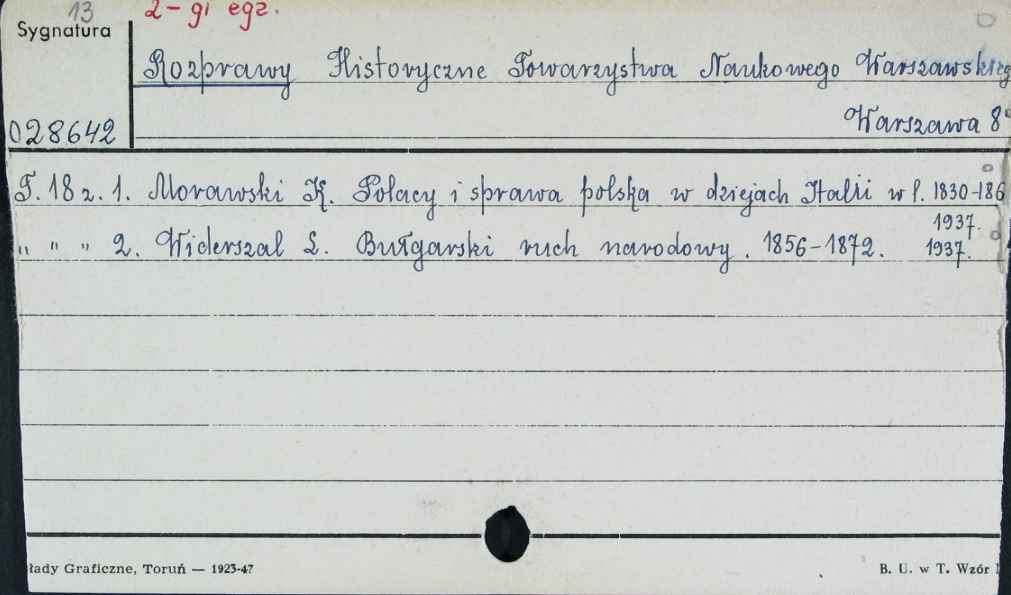 13 2-gi egz.
Sygnatura
Rozprawy Historyczne Towarzystwa Naukowego Warszawskieg
028642 Warszawa 8°
T. 18 z. 1. Morawski K. Polacy i sprawa polska w dziejach Italii w l. 1830-186
1937.
" " " 2. Widerszal L. Bułgarski ruch narodowy. 1856-1872. 1937.
łady Graficzne, Toruń — 1923-47 B. U. w T. Wzór